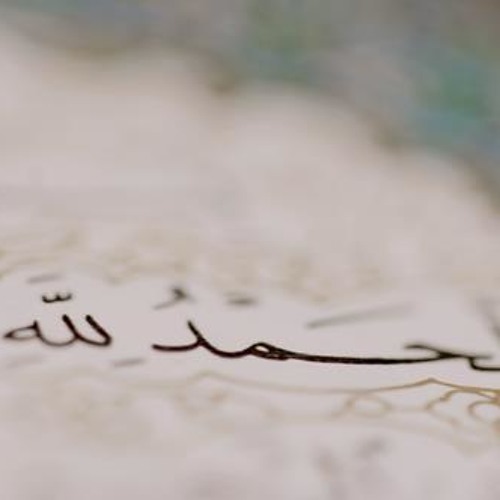 لحمدُ لِلَّهِ